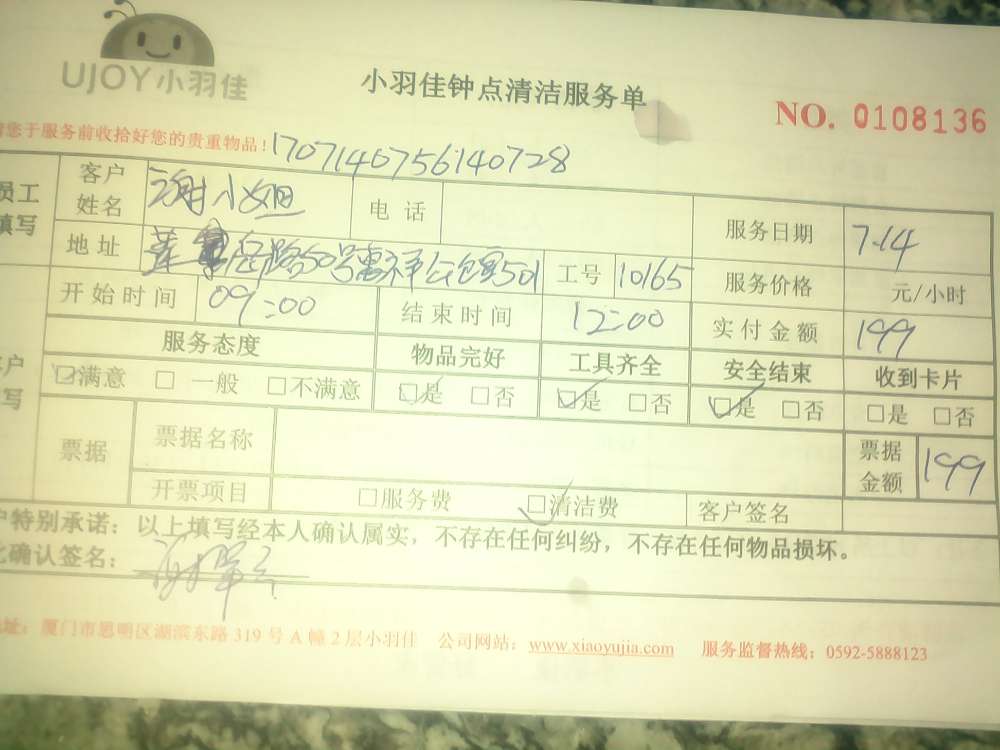 UJOY小羽佳
小羽佳钟点清洁服务单
NO. 0108136
您于服务前收拾好您的贵重物品！1707140756140728
员工填写
客户姓名 谢小姐 电话 服务日期 7.14
地址 莲岳路50号惠祥公寓501 工号 10165 服务价格 元/小时
开始时间 09:00 结束时间 12:00 实付金额 199
服务态度 物品完好 工具齐全 安全结束 收到卡片
户写
☑满意 □一般 □不满意 ☑是 □否 ☑是 □否 ☑是 □否 □是 □否
票据 票据名称 票据金额 199
开票项目 □服务费 ☑清洁费 客户签名
户特别承诺：以上填写经本人确认属实，不存在任何纠纷，不存在任何物品损坏。
此确认签名：
址：厦门市思明区湖滨东路319号A幢2层小羽佳 公司网站：www.xiaoyujia.com 服务监督热线：0592-5888123